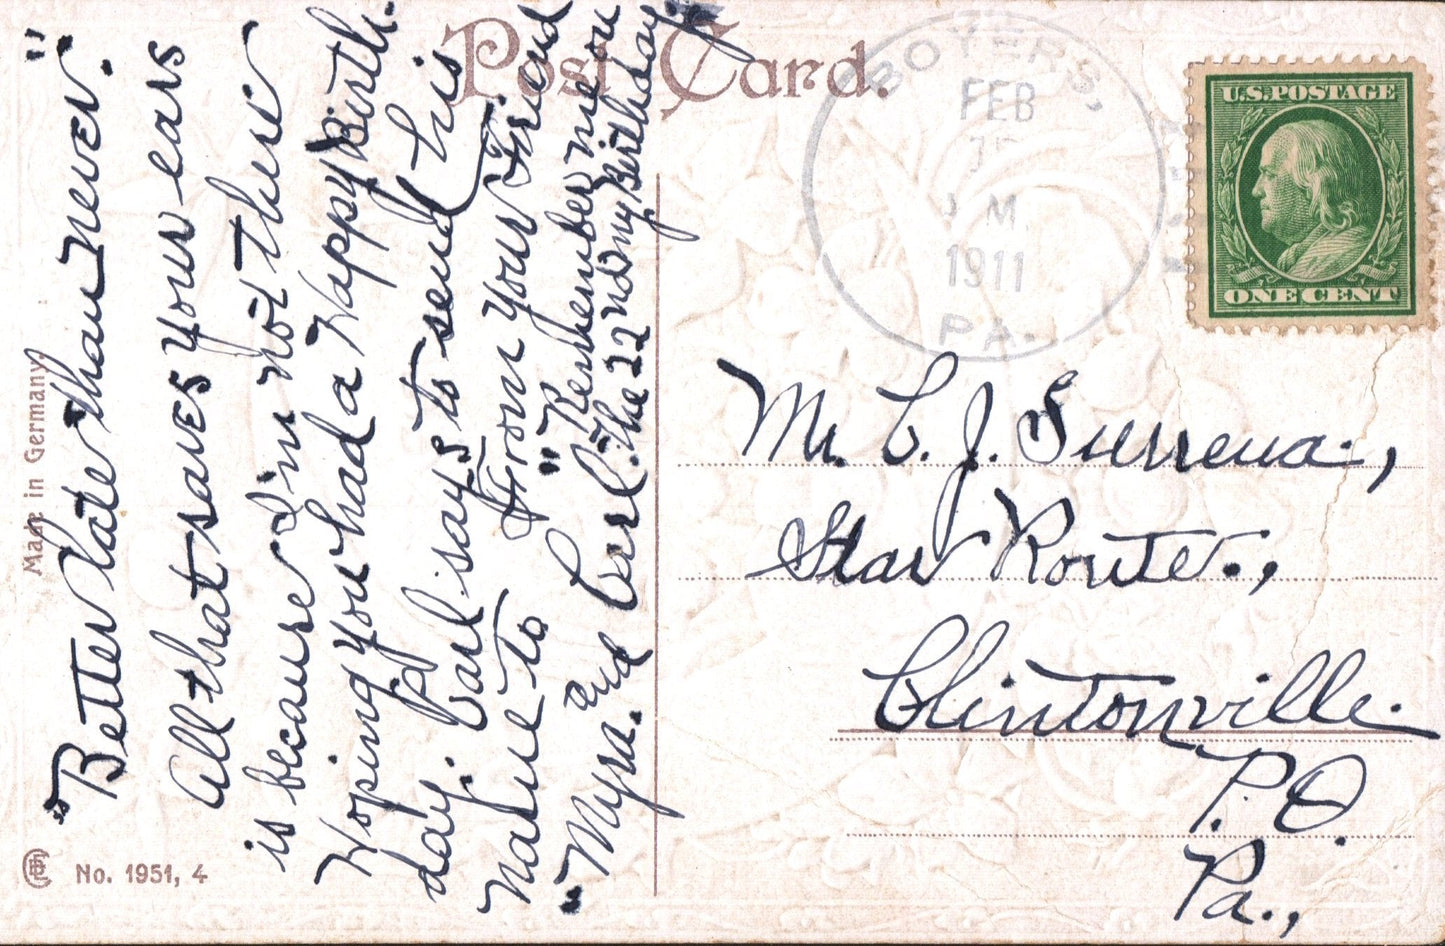 Post Card.
BOYERS,
FEB
1911
PA.
U.S. POSTAGE
ONE CENT
"Better Late than never."
All that saves your ears
is because I'm not there
Hoping you had a Happy Birth-
day. Carl says to send his
name to From your Friend
"Myra. and Carl." "Remember me on
the 22nd my Birthday."
Mr. C. J. Surrena.,
Star Route.,
Clintonville.
P.O.
Pa.,
Made in Germany.
No. 1951, 4